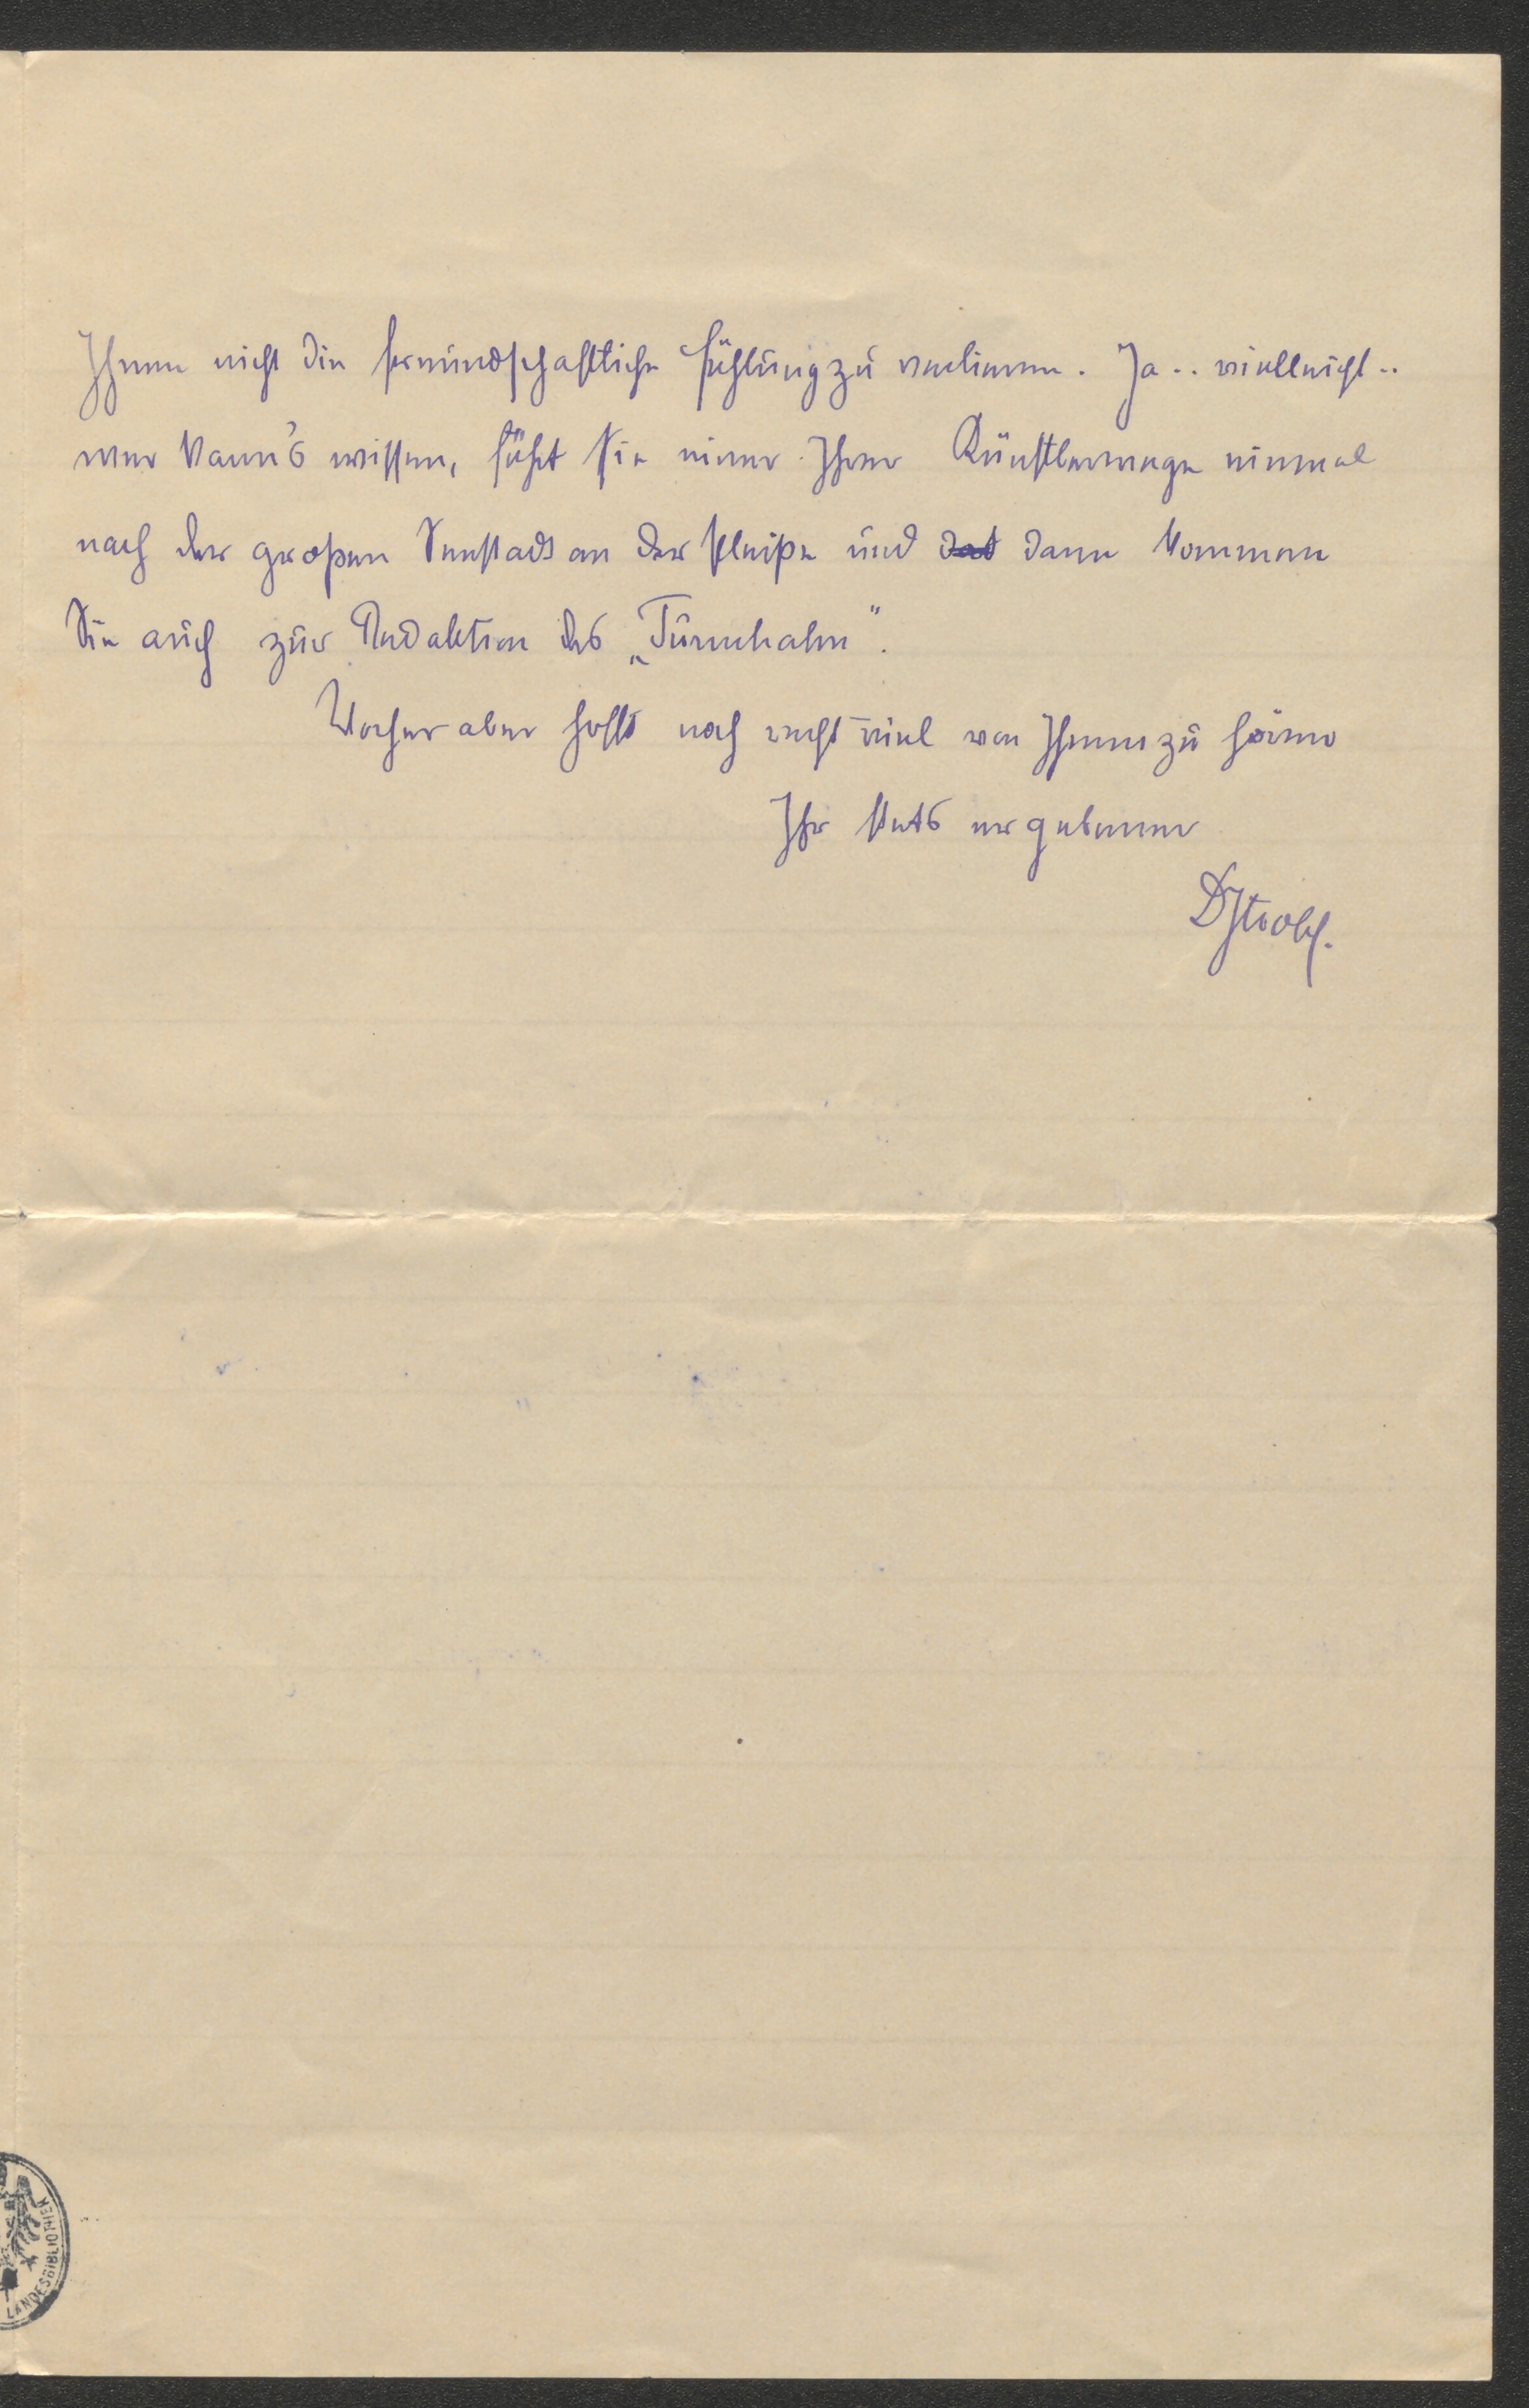 Ihnen nicht die freundschaftliche Fühlung zu verlieren. Ja .. vielleicht ..
wer kann's wissen, führt Sie einer Ihrer Künstlerwege einmal
nach der großen Seestadt an der Pleiße und dann kommen
Sie auch zur Redaktion des „Turmhahn“.
Vorher aber hofft noch recht viel von Ihnen zu hören
Ihr stets ergebener
DrStrobl.
LANDESBIBLIOTHEK